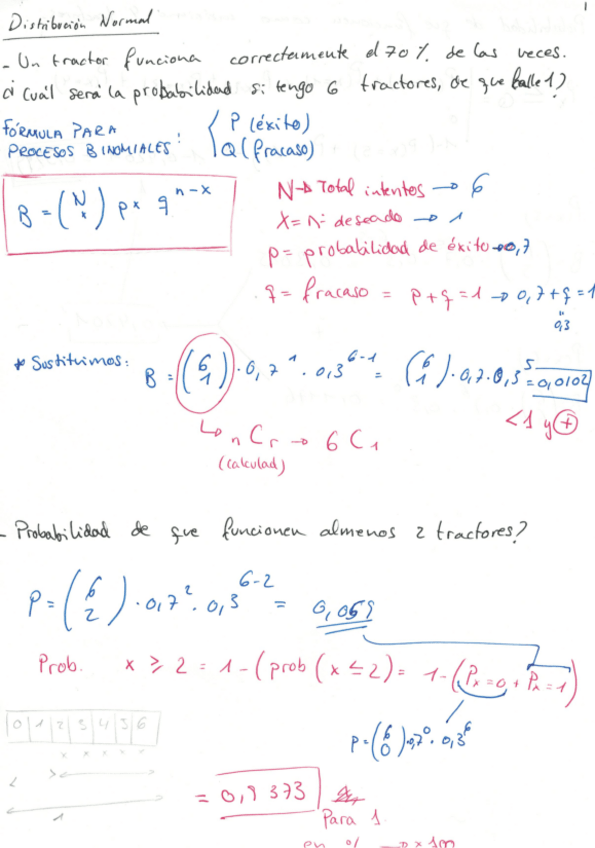 1
Distribución Normal
- Un tractor funciona correctamente el 70% de las veces.
¿Cuál será la probabilidad si tengo 6 tractores, de que falle 1?
FÓRMULA PARA PROCESOS BINOMIALES:
P (éxito)
Q (fracaso)
B = (N x) p^x q^n-x
N → Total intentos → 6
X = nº deseado → 1
p = probabilidad de éxito → 0,7
q = fracaso = p+q=1 → 0,7+q=1
0,3
* Sustituimos:
B = (6 1) · 0,7^1 · 0,3^6-1 = (6 1) · 0,7 · 0,3^5 = 0,0102
<1 y +
↳ nCr → 6C1
(calculad)
- Probabilidad de que funcionen almenos 2 tractores?
P = (6 2) · 0,7^2 · 0,3^6-2 = 0,059
Prob. x ≥ 2 = 1 - (prob (x ≤ 2) = 1 - (Px=0 + Px=1)
0 1 2 3 4 5 6
x x x x x
P = (6 0) · 0,7^0 · 0,3^6
<
1
= 0,9373
Para 1.
en % → x 100